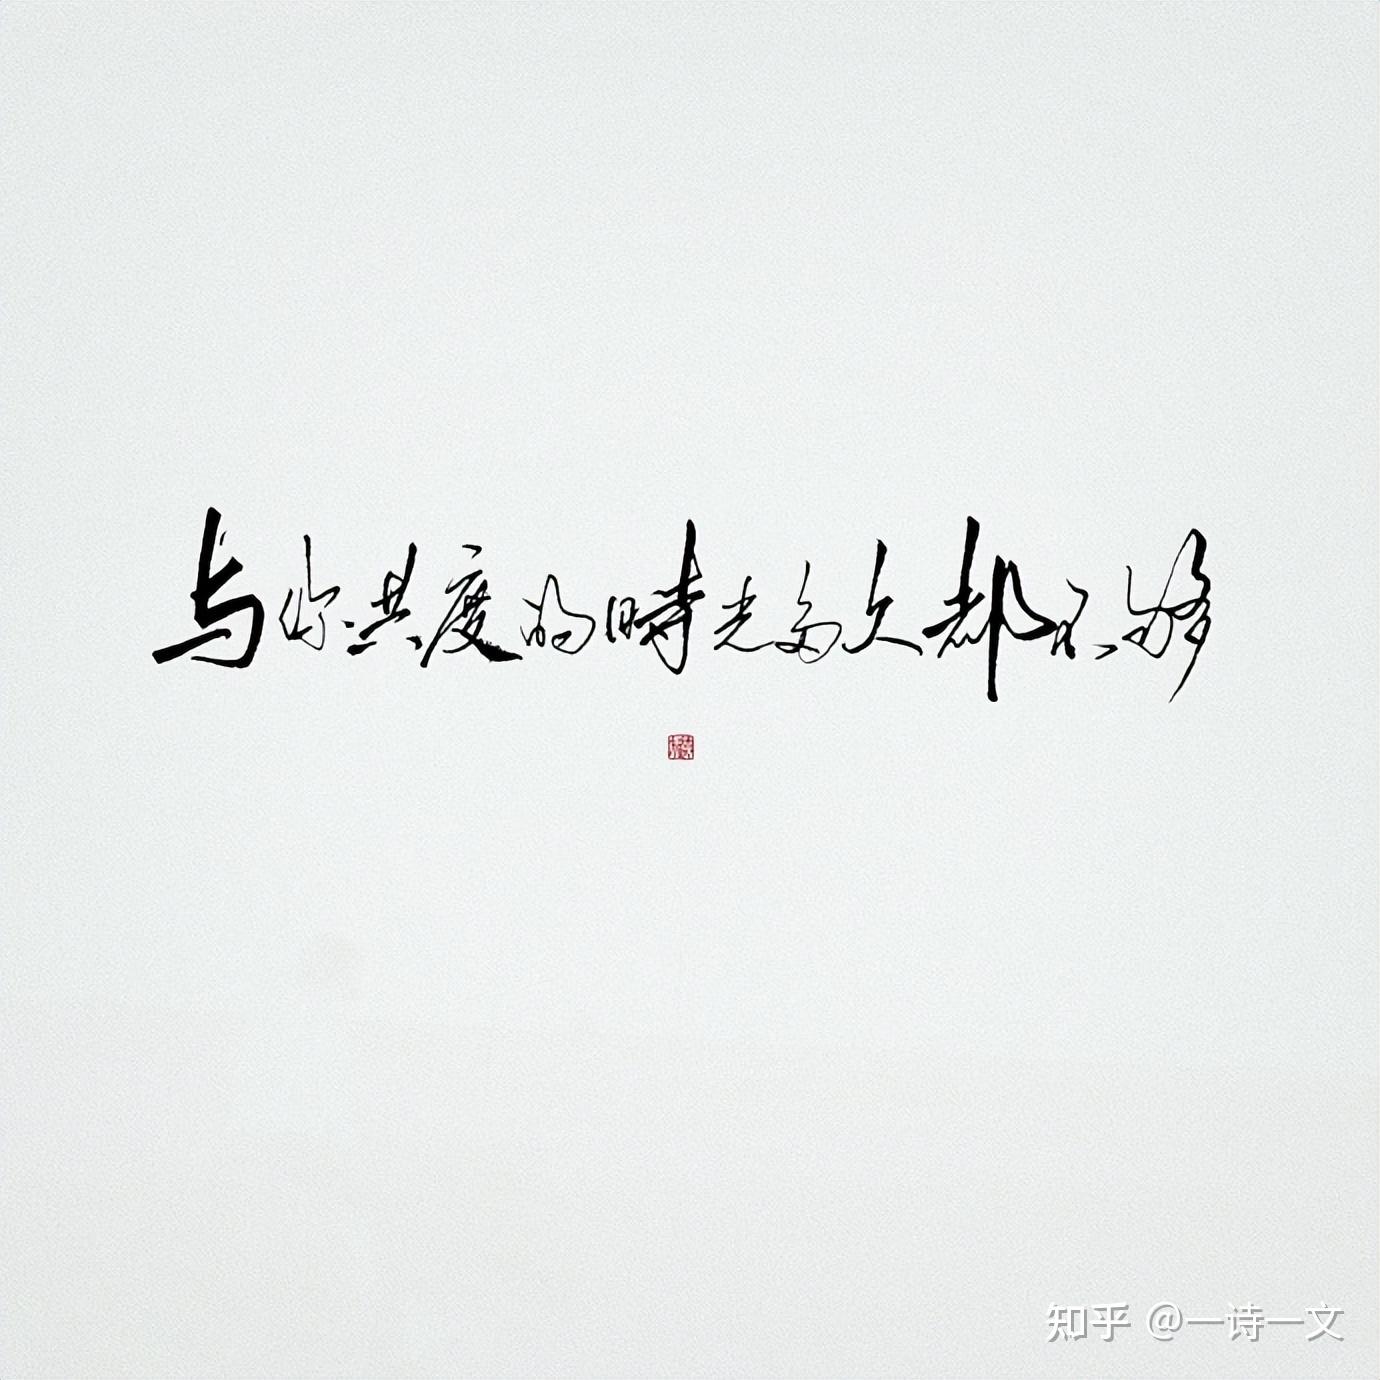 与你共度的時光多久都不够
知乎 @一诗一文